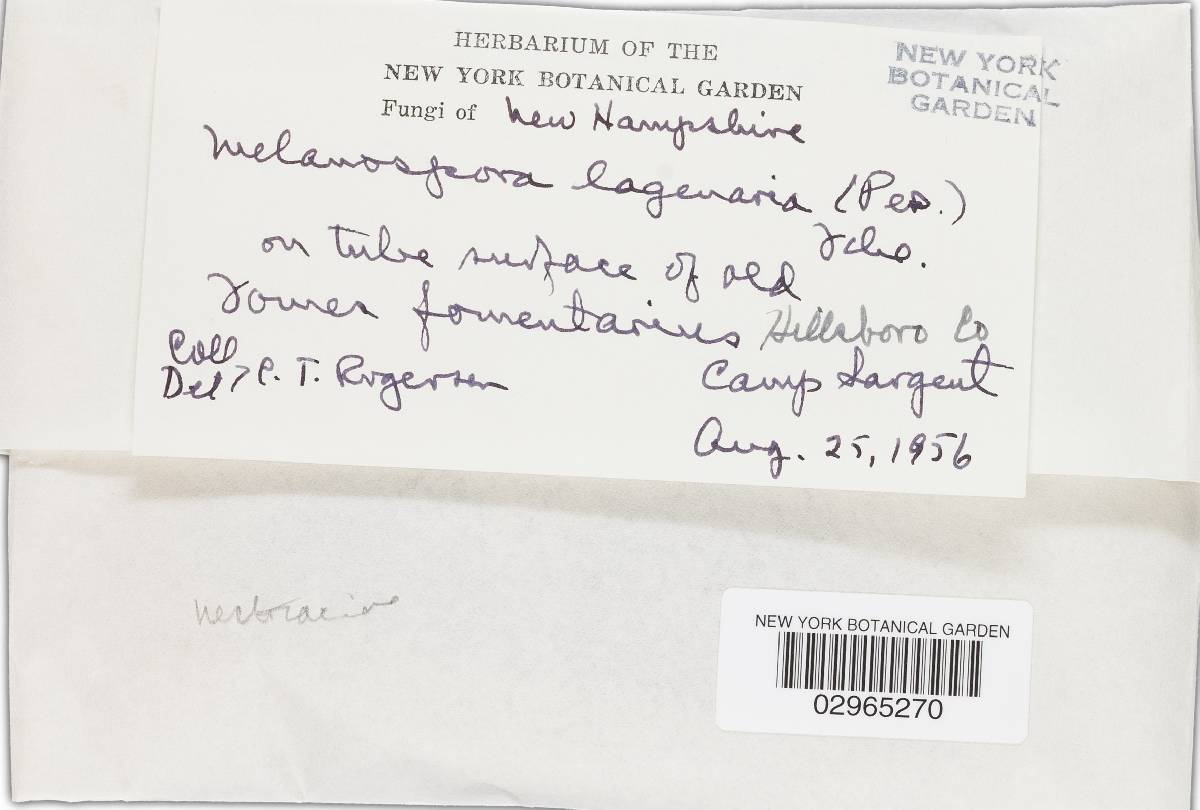 HERBARIUM OF THE
NEW YORK BOTANICAL GARDEN
Fungi of New Hampshire
NEW YORK
BOTANICAL
GARDEN
Melanospora lagenaria (Pers.)
on tube surface of old
Fomes fomentarius Hillsboro Co
Coll
Det > C. T. Rogerson
Camp Sargent
Aug. 25, 1956
NEW YORK BOTANICAL GARDEN
02965270